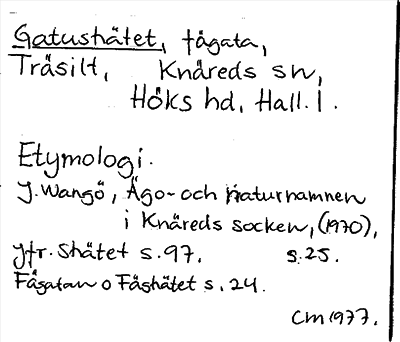 Gatushätet, fågata,
Träsilt, Knäreds sn,
Höks hd, Hall. l.
Etymologi.
J. Wangö, Ägo- och naturnamnen
i Knäreds socken, (1970),
Jfr. Shätet s. 97. s. 25.
Fågatan o Fåshätet s. 24.
CM 1977.